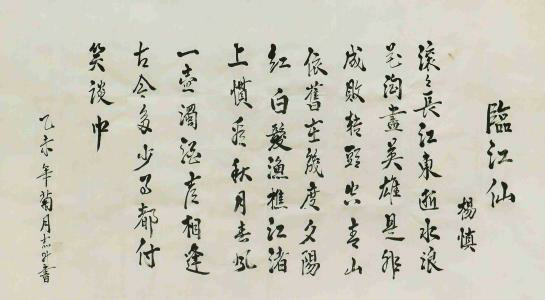 臨江仙
楊慎
滚々長江東逝水浪
花淘盡英雄是非
成敗轉頭空青山
依舊在幾度夕陽
紅 白髮漁樵江渚
上慣看秋月春風
一壺濁酒喜相逢
古今多少事都付
笑談中
乙亥年菊月書